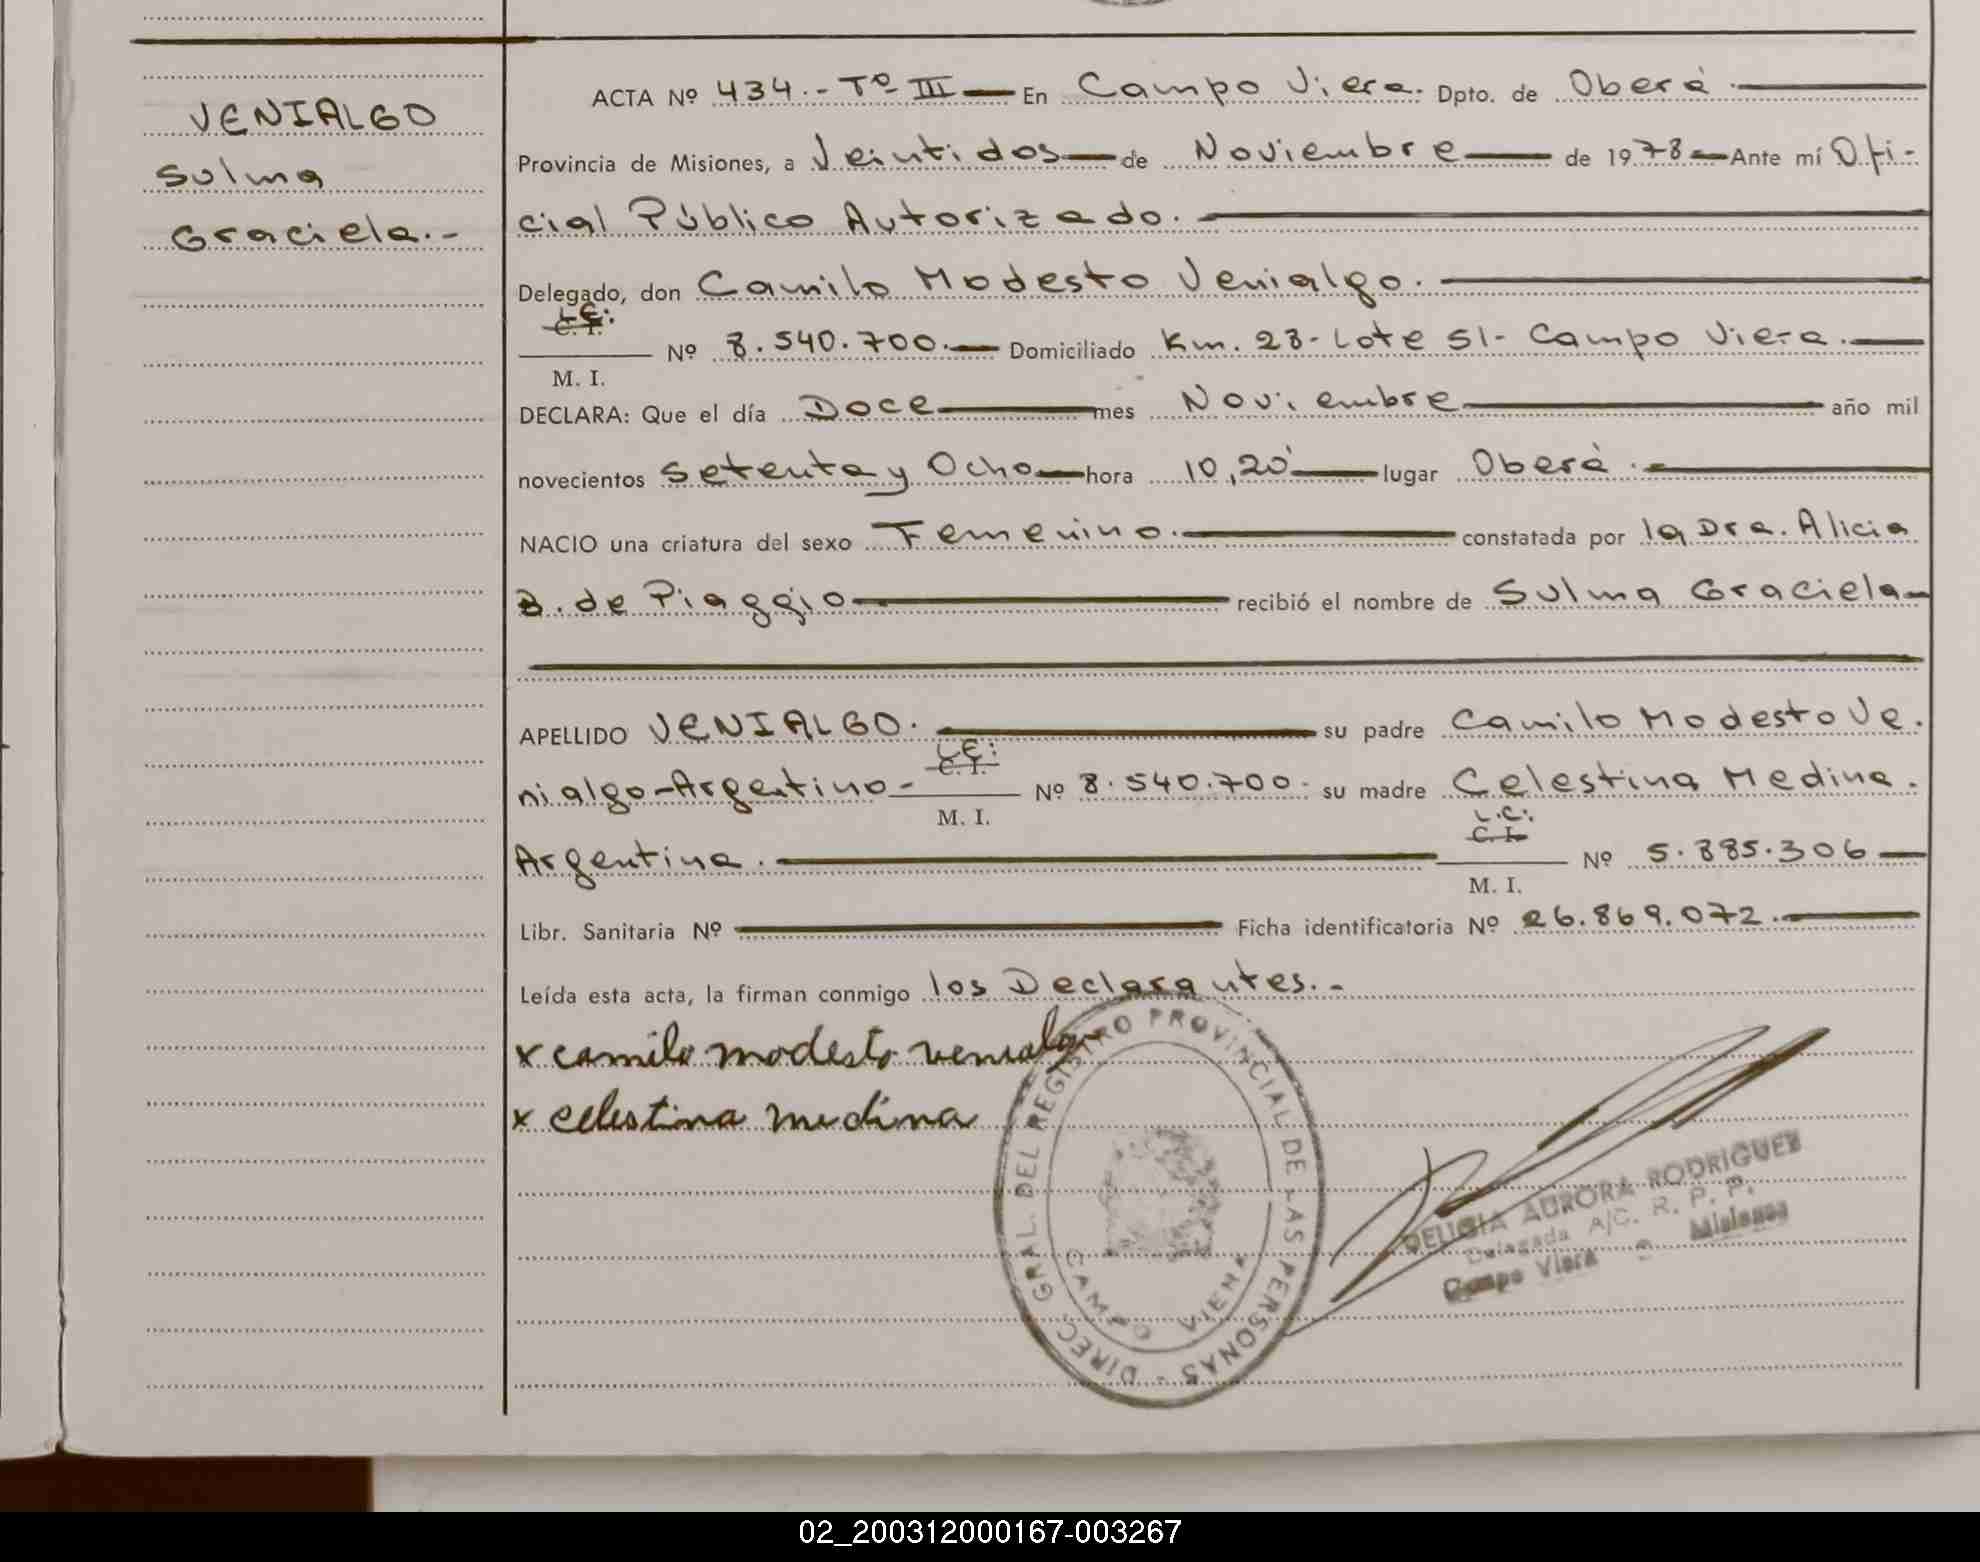 VENIALGO
Sulma
Graciela.-
ACTA Nº 434.- Tº III — En Campo Viera. Dpto. de Oberá.
Provincia de Misiones, a Veintidos — de Noviembre — de 1978 — Ante mí Ofi-
cial Público Autorizado.
Delegado, don Camilo Modesto Venialgo.
L.E:
C. I.
Nº 8.540.700. — Domiciliado Km. 28- Lote 51- Campo Viera.
M. I.
DECLARA: Que el día Doce — mes Noviembre — año mil
novecientos Setenta y Ocho — hora 10,20' — lugar Oberá.
NACIO una criatura del sexo Femenino. — constatada por la Dra. Alicia
B. de Piaggio — recibió el nombre de Sulma Graciela —
APELLIDO VENIALGO. — su padre Camilo Modesto Ve.
L.E:
C. I.
nialgo-Argentino- Nº 8.540.700. su madre Celestina Medina.
M. I.
L.C:
C. I.
Argentina. — Nº 5.885.306 —
M. I.
Libr. Sanitaria Nº — Ficha identificatoria Nº 26.869.072.
Leída esta acta, la firman conmigo los Declarantes.-
x camilo modesto venialgo
x celestina medina
DIREC. GRAL. DEL REGISTRO PROVINCIAL DE LAS PERSONAS -
CAMPO VIERA
DELICIA AURORA RODRIGUEZ
Delegada A/C. R. P. P.
Campo Viera Misiones
02_200312000167-003267